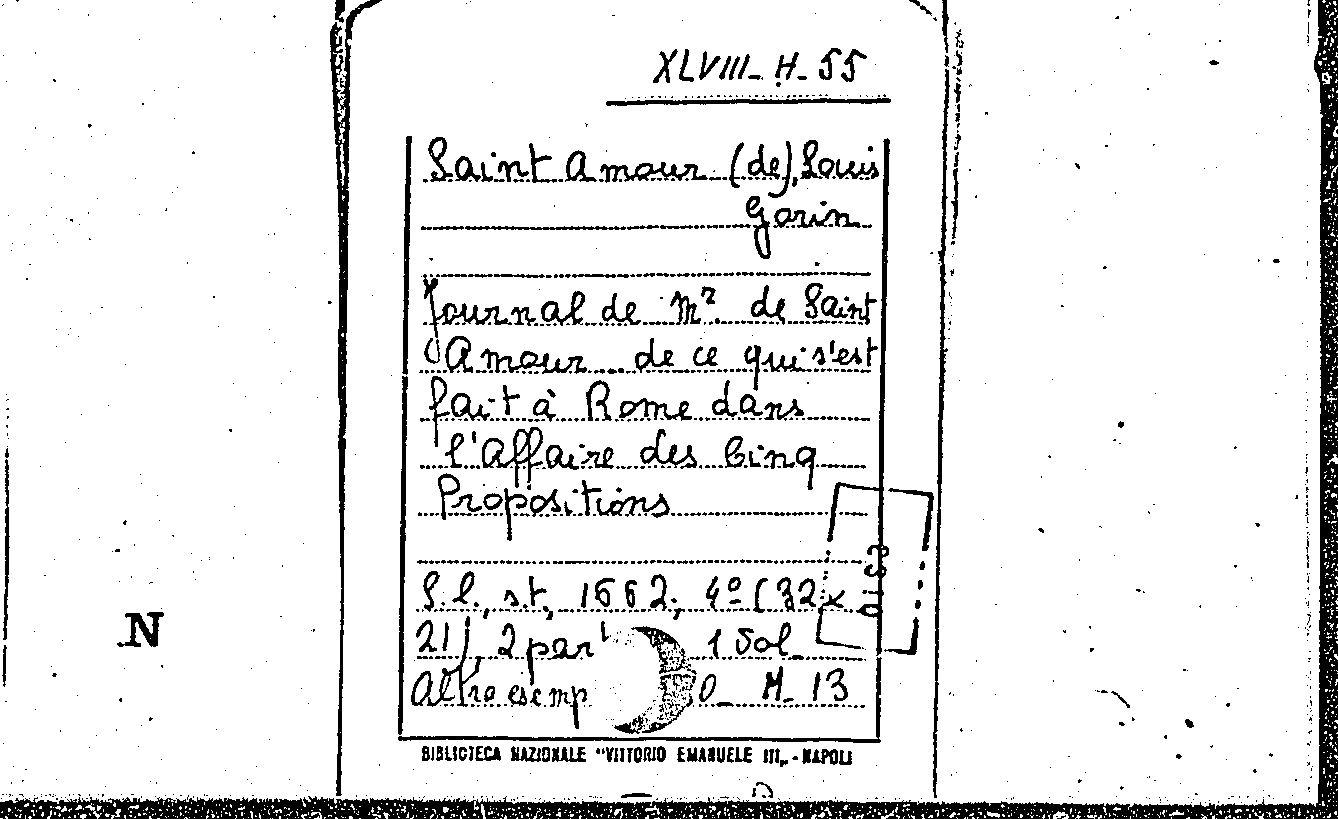 XLVIII_ H_ 55
Saint Amour (de), Louis
Gorin
Journal de Mr. de Saint
Amour ... de ce qui s'est
fait à Rome dans
l'Affaire des Cinq
Propositions
S.l., s.t., 1662; 4º (32x
21), 2 part 1 vol_
Altro esemp O_ M_ 13
N
BIBLIOTECA NAZIONALE "VITTORIO EMANUELE III„ - NAPOLI